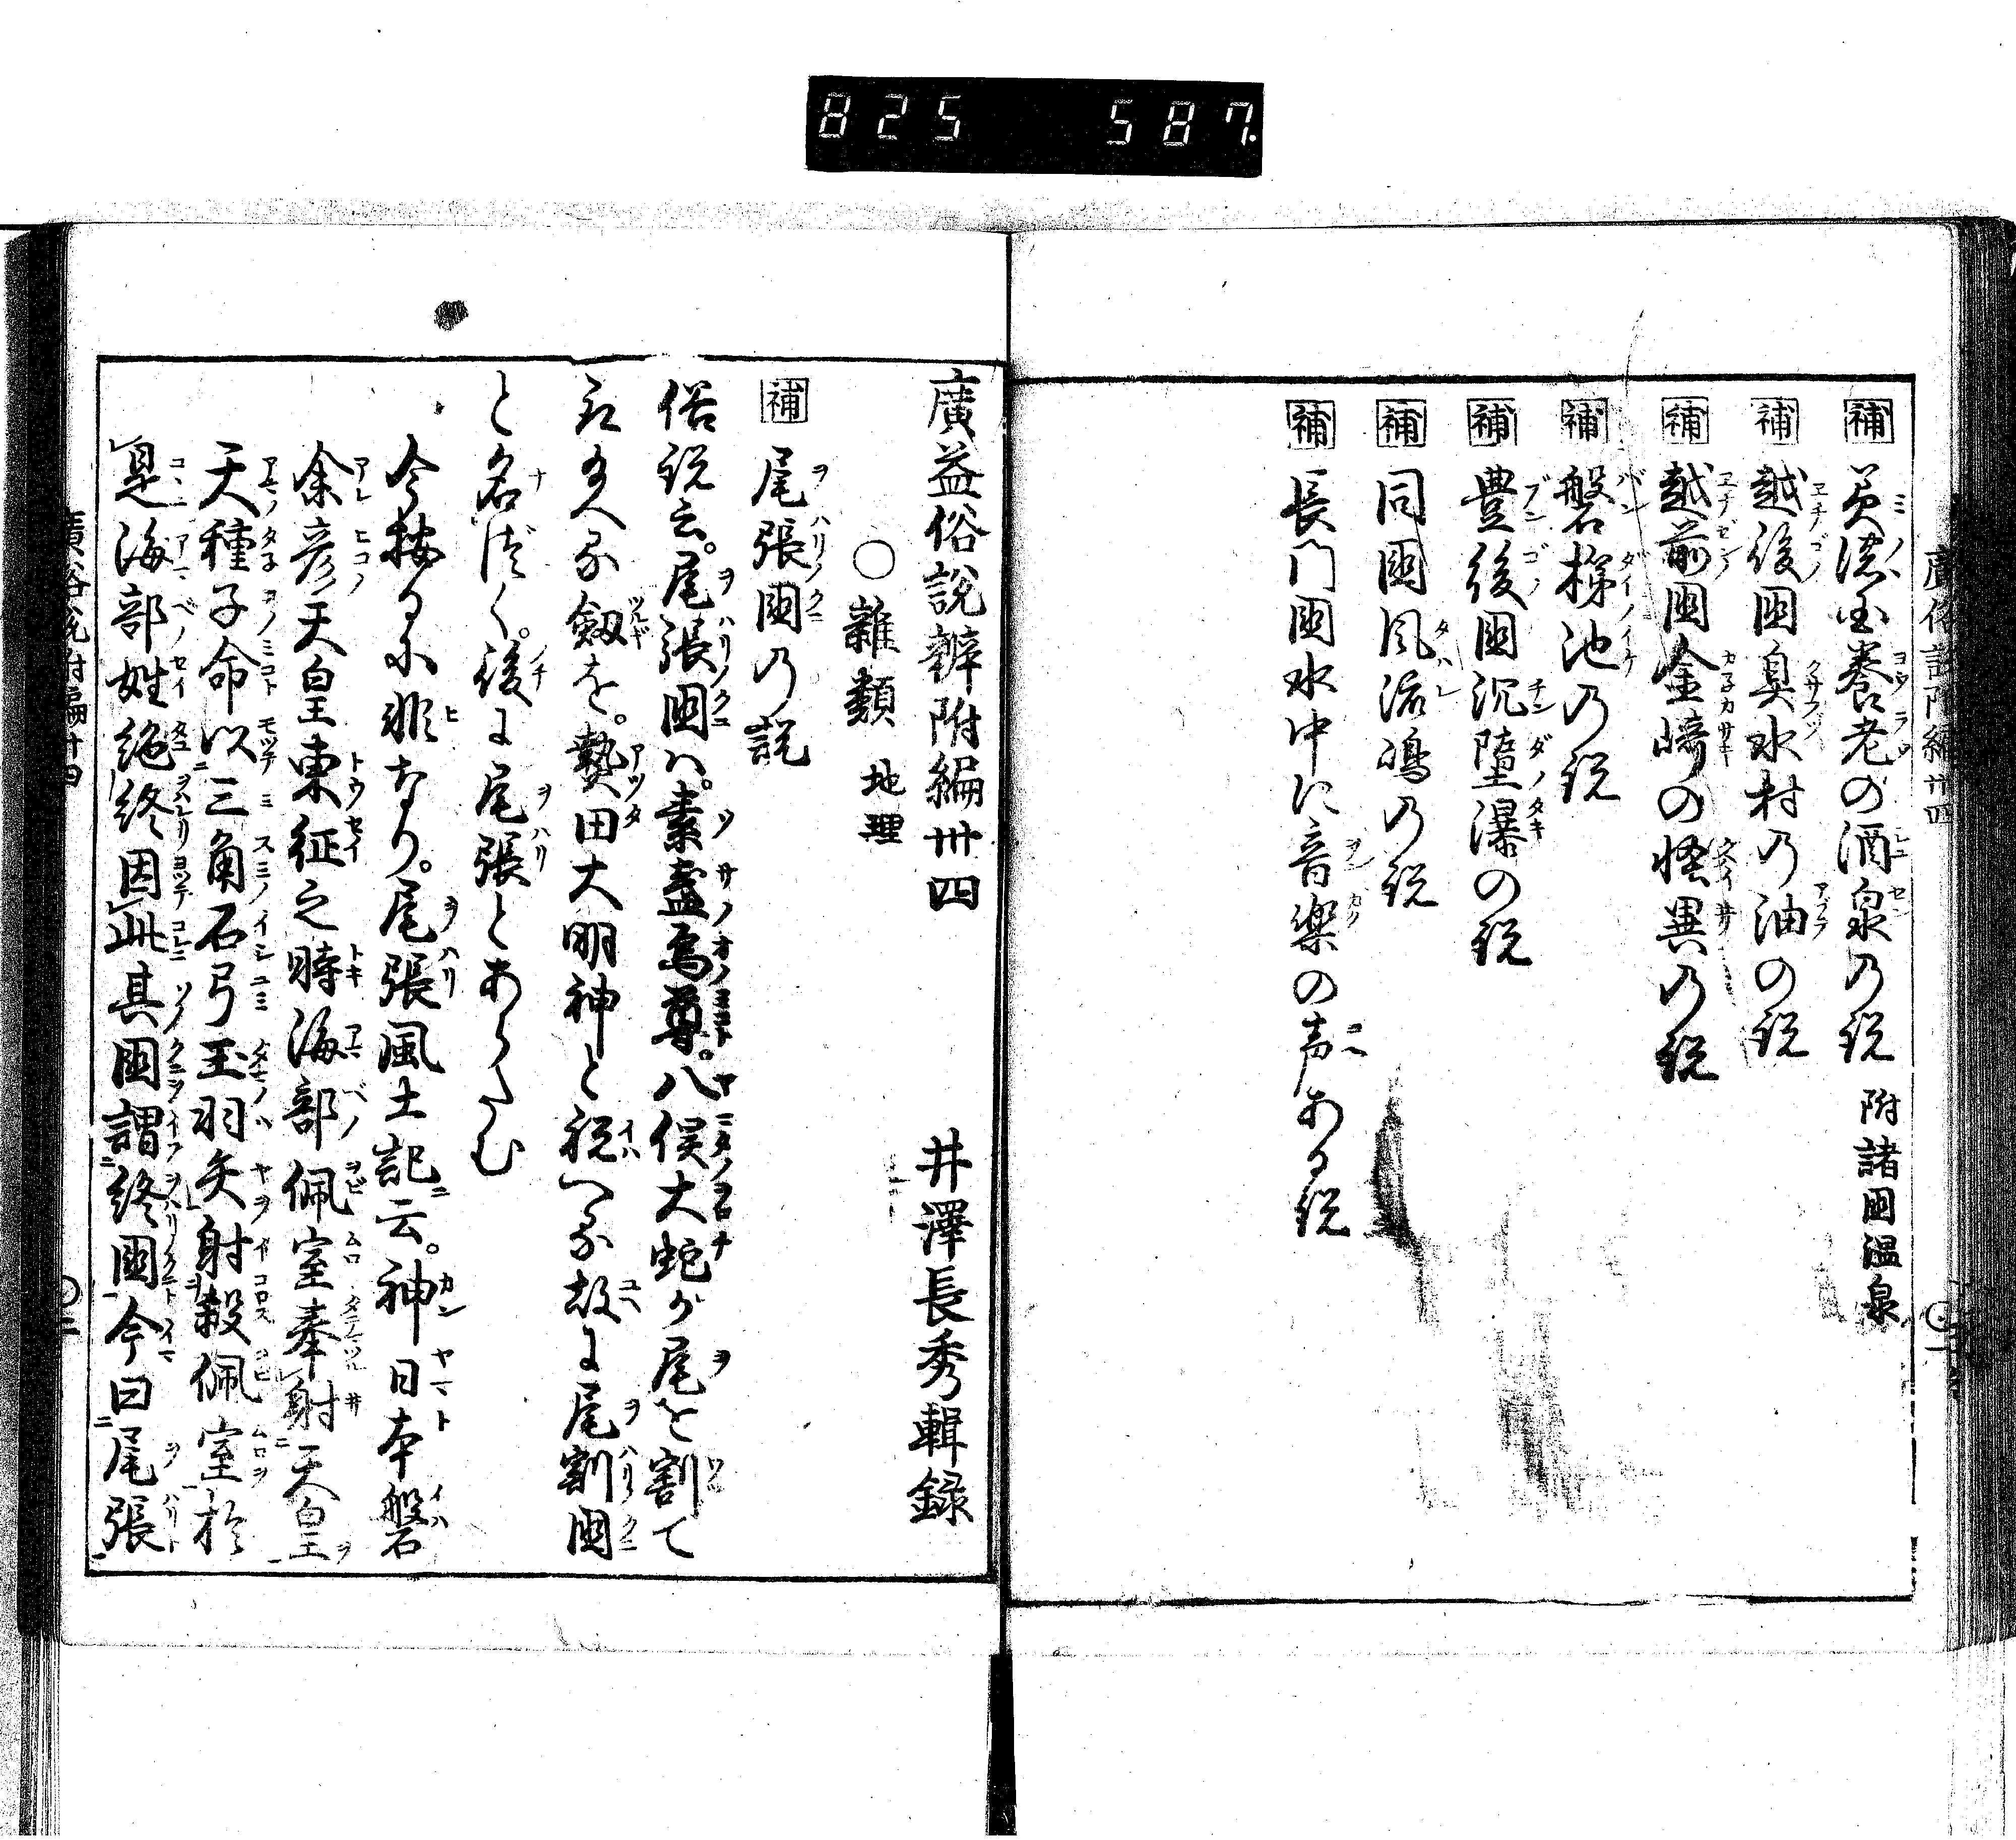 825 587.
廣俗説附編卅四
補 美濃国養老の酒泉の説 附諸国温泉
補 越後国臭水村の油の説
補 越前国金﨑の怪異の説
補 磐梯池の説
補 豊後国沉堕瀑の説
補 同国風流嶋の説
補 長門国水中に音楽の声ある説
廣益俗說辨附編卅四 井澤長秀輯録
○雜類 地理
補 尾張国の説
俗説云。尾張国ハ。素盞烏尊。八俣大蛇が尾を割て
給へる劔を。熱田大明神と祝へる故に尾割国
と名づく。後に尾張とあらたむ
今按るに非なり。尾張風土記云。神日本磐
余彦天皇東征之時海部佩室奉射天皇
天種子命以三角石弓玉羽矢射殺佩室於
是海部姓絶終因此其国謂終国今曰尾張
廣俗説附編卅四